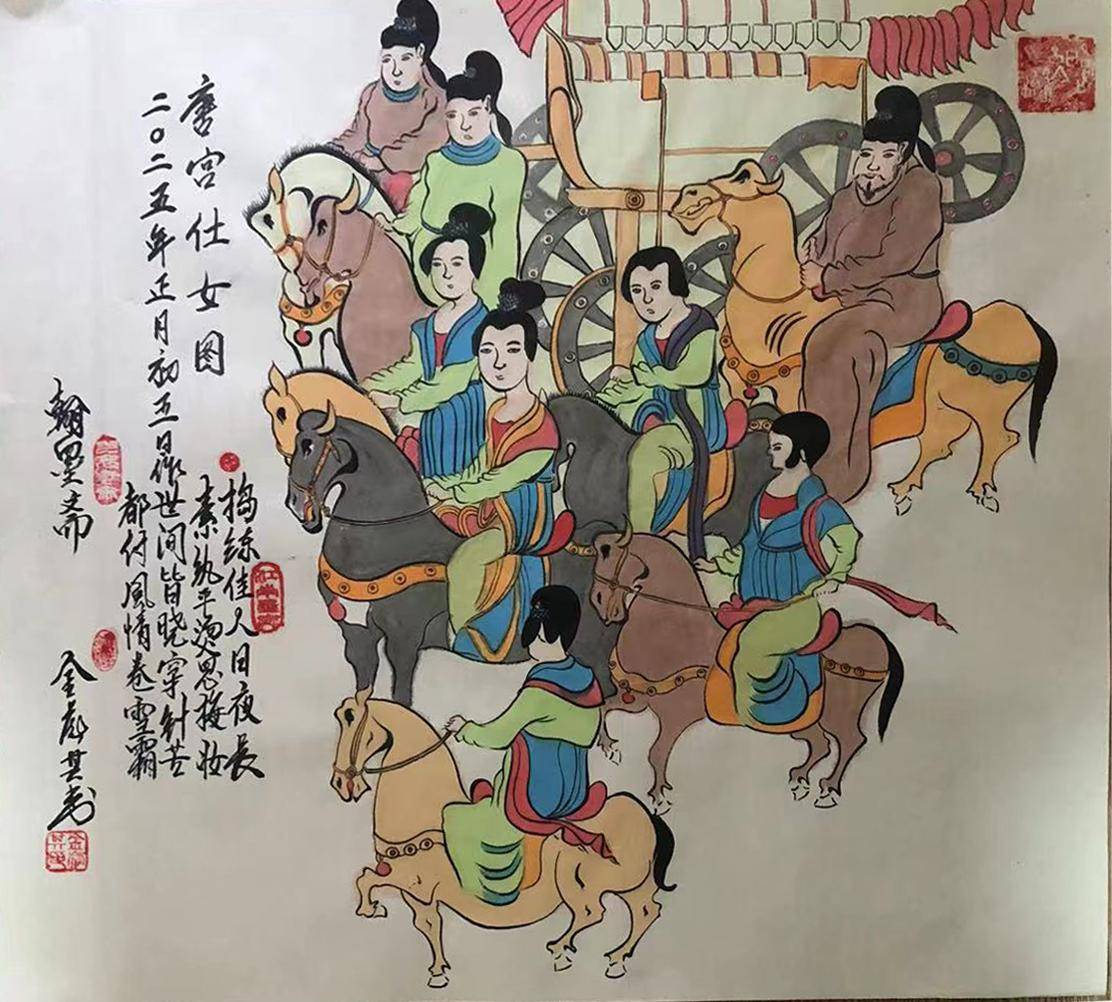 唐宫仕女图
二〇二五年正月初五日作
捣练佳人日夜长
素纨平烫思妆
世间皆晓穿针苦
都付風情卷雪霜
翰墨斋
金彪其